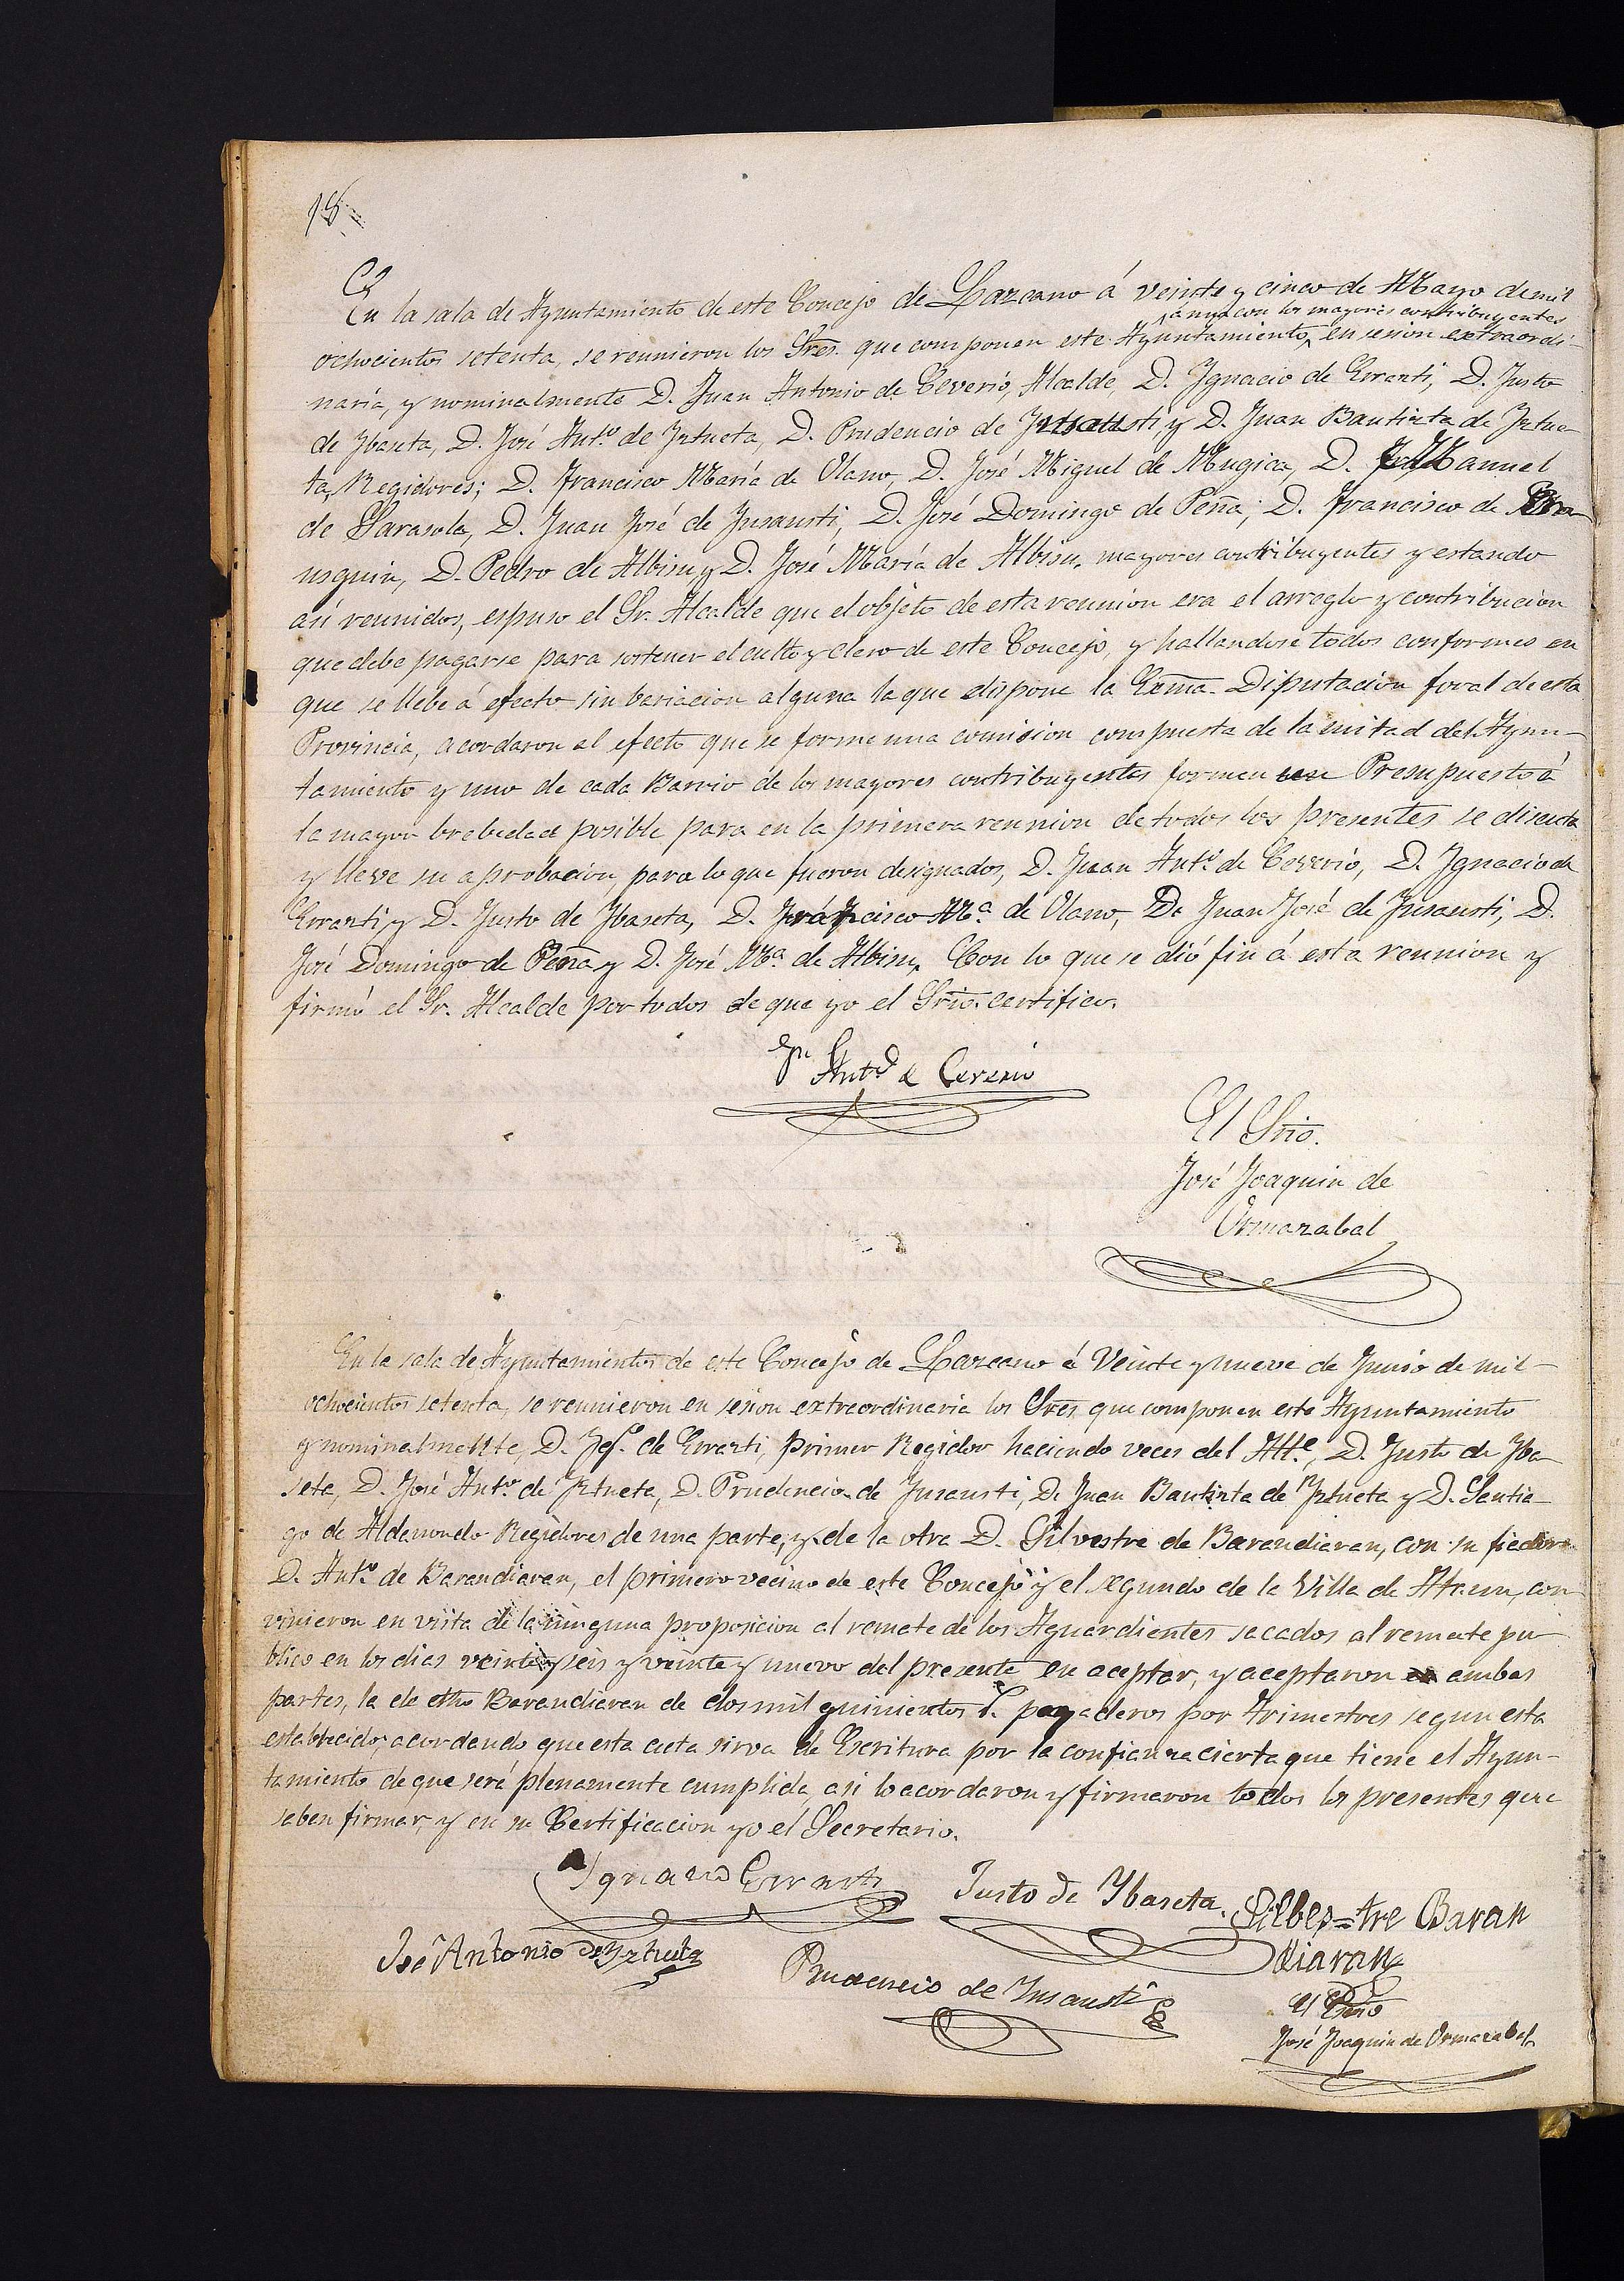 18
En la sala de Ayuntamiento de este Concejo de Lazcano á veinte y cinco de Mayo de mil
con los mayores contribuyentes
ochocientos setenta, se reunieron los Sres. que componen este Ayuntamiento, en sesion extraordi-
naria, y nominalmente D. Juan Antonio de Ceverió, Alcalde, D. Ygnacio de Errarti, D. Justo
de Ybaseta, D. José Antº. de Yztueta, D. Prudencio de Ynsausti, y D. Juan Bautizta de Yztue-
ta, Regidores; D. Francisco María de Olano, D. José Miguel de Mugica, D. Manuel
de Sarasola, D. Juan José de Ynsausti, D. José Domingo de Peña, D. Francisco de
usquin, D. Pedro de Albisu, y D. José María de Albisu, mayores contribuyentes y estando
así reunidos, espuso el Sr. Alcalde que el objeto de esta reunion era el arreglo y contribucion
que debe pagarse para sostener el culto y clero de este Concejo, y hallandose todos conformes en
que se llebe á efecto sin bariacion alguna la que dispone la Exma. Diputacion foral de esta
Provincia, acordaron al efecto que se forme una comision compuesta de la mitad del Ayun-
tamiento y uno de cada Barrio de los mayores contribuyentes formen Presupuesto á
la mayor brebedad posible para en la primera reunion de todos los presentes se discuta
y lleve su aprobacion, para lo que fueron designados, D. Juan Antº. de Ceverió, D. Ygnacio de
Errarti y D. Justo de Ybaseta, D. Francisco Mª. de Olano, D. Juan José de Ynsausti, D.
José Domingo de Peña y D. José Mª. de Albisu. Con lo que se dió fin á esta reunion y
firmó el Sr. Alcalde por todos de que yo el Srio. certifico.
Jn Antº de Ceverió
El Srio.
José Joaquin de
Ormazabal
En la sala de Ayuntamiento de este Concejo de Lazcano á Veinte y nueve de Junio de mil-
ochocientos setenta, se reunieron en sesion extraordinaria los Sres. que componen este Ayuntamiento
y nominalmente, D. Ygº. de Errarti, primer Regidor haciendo veces del Alle., D. Justo de Yba-
seta, D. José Antº. de Yztueta, D. Prudencio de Ynsausti, D. Juan Bautizta de Yztueta y D. Santia-
go de Aldasondo Regidores de una parte, y de la otra D. Silvestre de Barandiaran, con su fiador
D. Antº. de Barandiaran, el primero vecino de este Concejo y el segundo de la Villa de Ataun, con-
vinieron en vista de la ninguna proposicion al remate de los Aguardientes sacados al remate pu-
blico en los dias veinte y seis y veinte y nueve del presente en aceptar, y aceptaron ambas
partes, la de dho Barandiaran de dos mil quinientos r. pagaderos por trimestres segun esta
establecido, acordando que esta acta sirva de Escritura por la confianza cierta que tiene el Ayun-
tamiento de que será plenamente cumplida, asi lo acordaron y firmaron todos los presentes que
saben firmar, y en su Certificacion yo el Secretario.
Ygnacio Errarti
Justo de Ybaseta.
Silbes=tre Baran
diaran
José Antonio de Yztueta
Prudencio de Ynsausti
El Srio
José Joaquin de Ormazabal